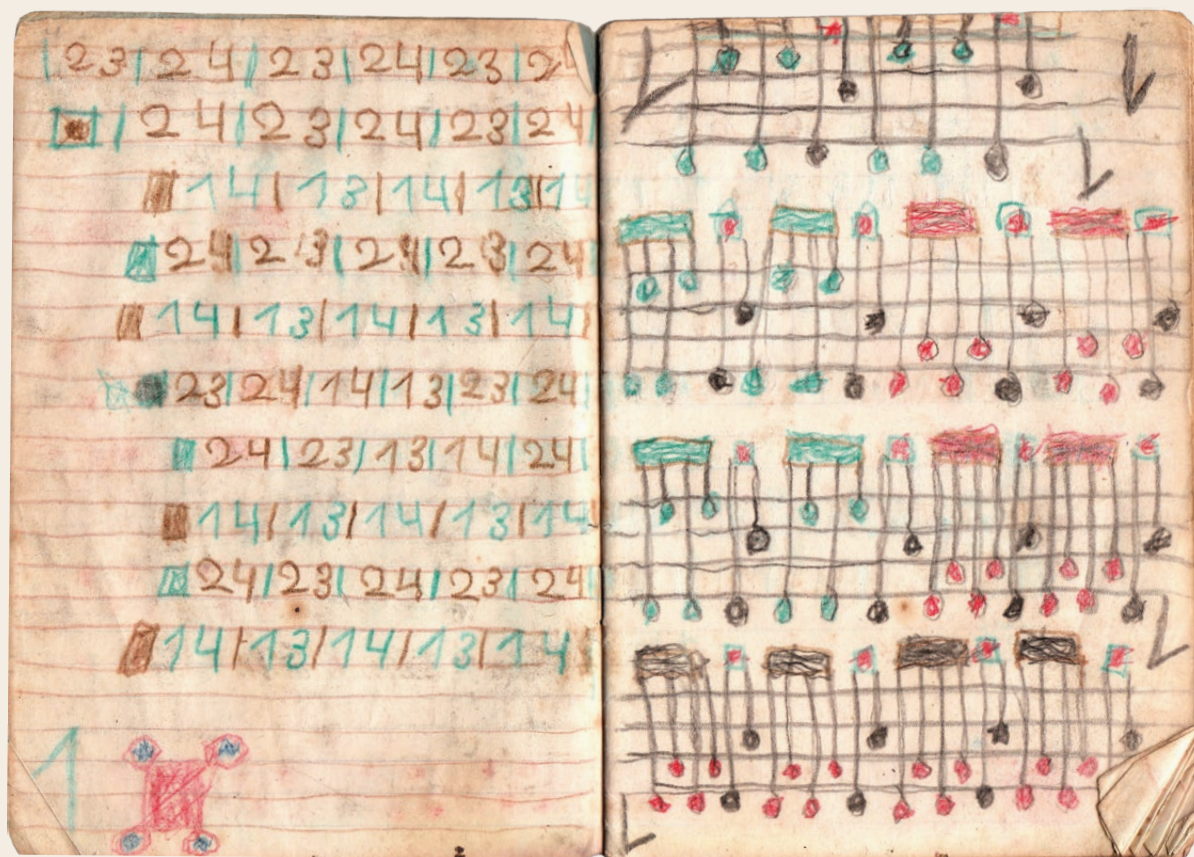 23 | 24 | 23 | 24 | 23 | 24
| 24 | 23 | 24 | 23 | 24
14 | 13 | 14 | 13 | 14
24 | 23 | 24 | 23 | 24
14 | 13 | 14 | 13 | 14
23 | 24 | 14 | 13 | 23 | 24
24 | 23 | 13 | 14 | 24
14 | 13 | 14 | 13 | 14
24 | 23 | 24 | 23 | 24
14 | 13 | 14 | 13 | 14
1